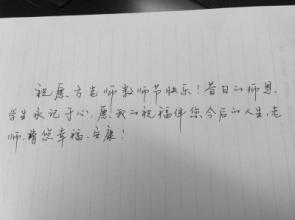 祝愿方老师教师节快乐！昔日的师恩，
学生永记于心，愿我的祝福伴您今后的人生，老
师，请您幸福、安康！